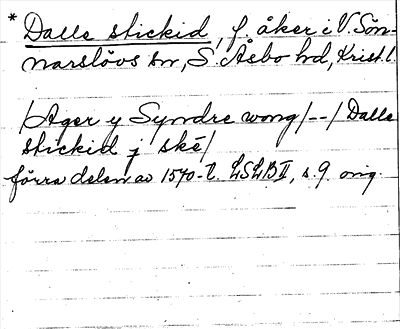 * Dalle stickid, f. åker i V. Sön-
narslövs sn, S. Åsbo hd, Krist. l.
/Ager y Syndre wong/--/Dalle
stickid j skē/
förra delen av 1570-t. LSLB II, s. 9. orig.